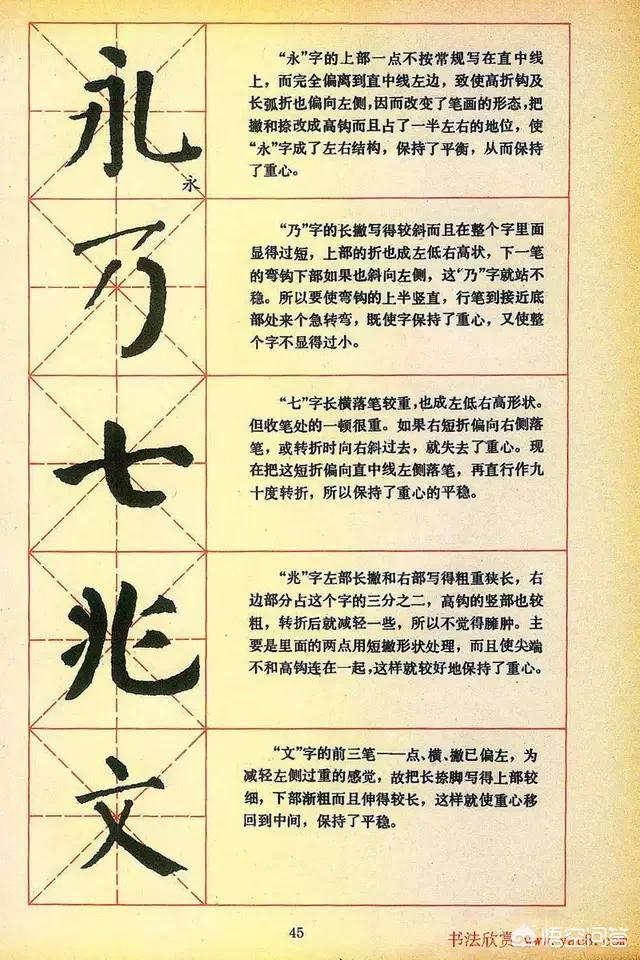 永
永
“永”字的上部一点不按常规写在直中线
上，而完全偏离到直中线左边，致使高折钩及
长弧折也偏向左侧，因而改变了笔画的形态，把
撇和捺改成高钩而且占了一半左右的地位，使
“永”字成了左右结构，保持了平衡，从而保持
了重心。
乃
“乃”字的长撇写得较斜而且在整个字里面
显得过短，上部的折也成左低右高状，下一笔
的弯钩下部如果也斜向左侧，这“乃”字就站不
稳。所以要使弯钩的上半竖直，行笔到接近底
部处来个急转弯，既使字保持了重心，又使整
个字不显得过小。
七
“七”字长横落笔较重，也成左低右高形状。
但收笔处的一顿很重。如果右短折偏向右侧落
笔，或转折时向右斜过去，就失去了重心。现
在把这短折偏向直中线左侧落笔，再直行作九
十度转折，所以保持了重心的平稳。
兆
“兆”字左部长撇和右部写得粗重狭长，右
边部分占这个字的三分之二，高钩的竖部也较
粗，转折后就减轻一些，所以不觉得臃肿。主
要是里面的两点用短撇形状处理，而且使尖端
不和高钩连在一起，这样就较好地保持了重心。
文
“文”字的前三笔——点、横、撇已偏左，为
减轻左侧过重的感觉，故把长捺脚写得上部较
细，下部渐粗而且伸得较长，这样就使重心移
回到中间，保持了平稳。
45
书法欣赏
悟空问答